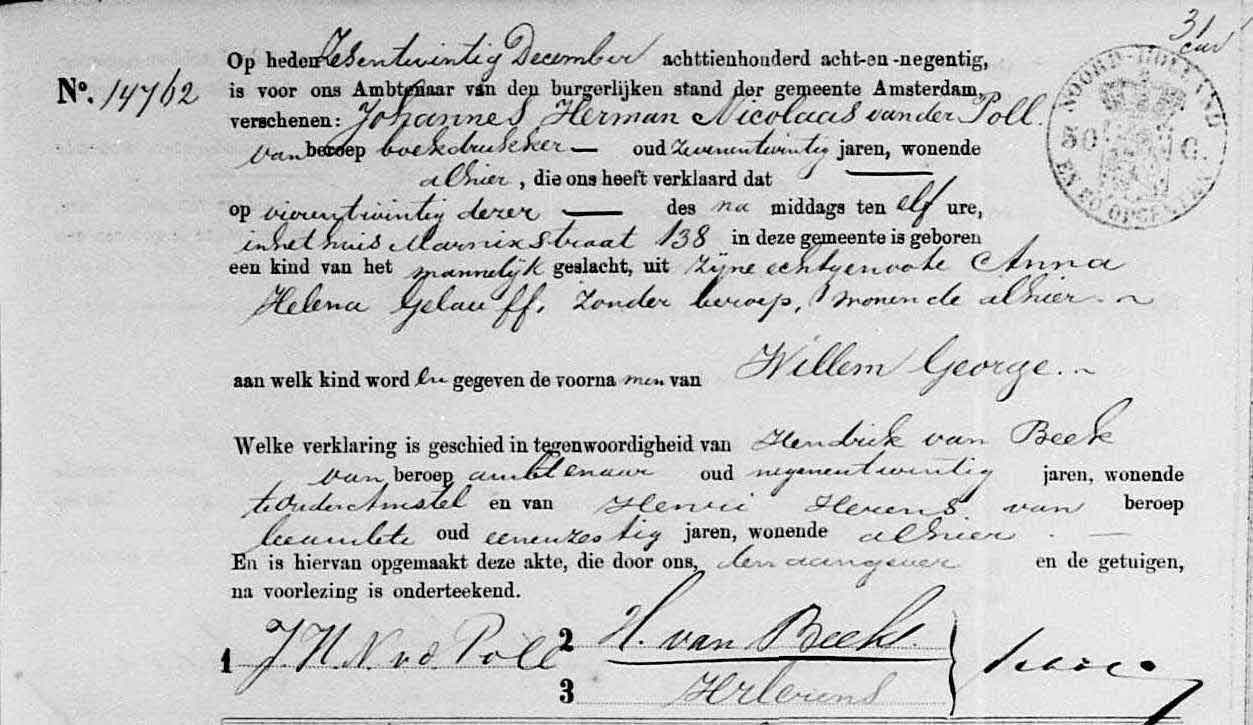 31
Op heden Zesentwintig December achttienhonderd acht-en-negentig,
No. 14762 is voor ons Ambtenaar van den burgerlijken stand der gemeente Amsterdam,
verschenen: Johannes Herman Nicolaas van der Poll.
van beroep boekdrukker — oud zevenentwintig jaren, wonende
alhier, die ons heeft verklaard dat —
op vierentwintig dezer — des na middags ten elf ure,
in het huis Marnixstraat 138 in deze gemeente is geboren
een kind van het mannelijk geslacht, uit zijne echtgenoote Anna
Helena Gelauff, zonder beroep, wonende alhier.
aan welk kind word en gegeven de voorna men van Willem George.
Welke verklaring is geschied in tegenwoordigheid van Hendrick van Beek
van beroep ambtenaar oud negenentwintig jaren, wonende
te Ouder Amstel en van Henri Herens van beroep
beambte oud eenenzestig jaren, wonende alhier. —
En is hiervan opgemaakt deze akte, die door ons, den aangever en de getuigen,
na voorlezing is onderteekend.
1 J. H. N. v. d. Poll 2 H. van Beek.
3
NOORD-HOLLAND
50 C.